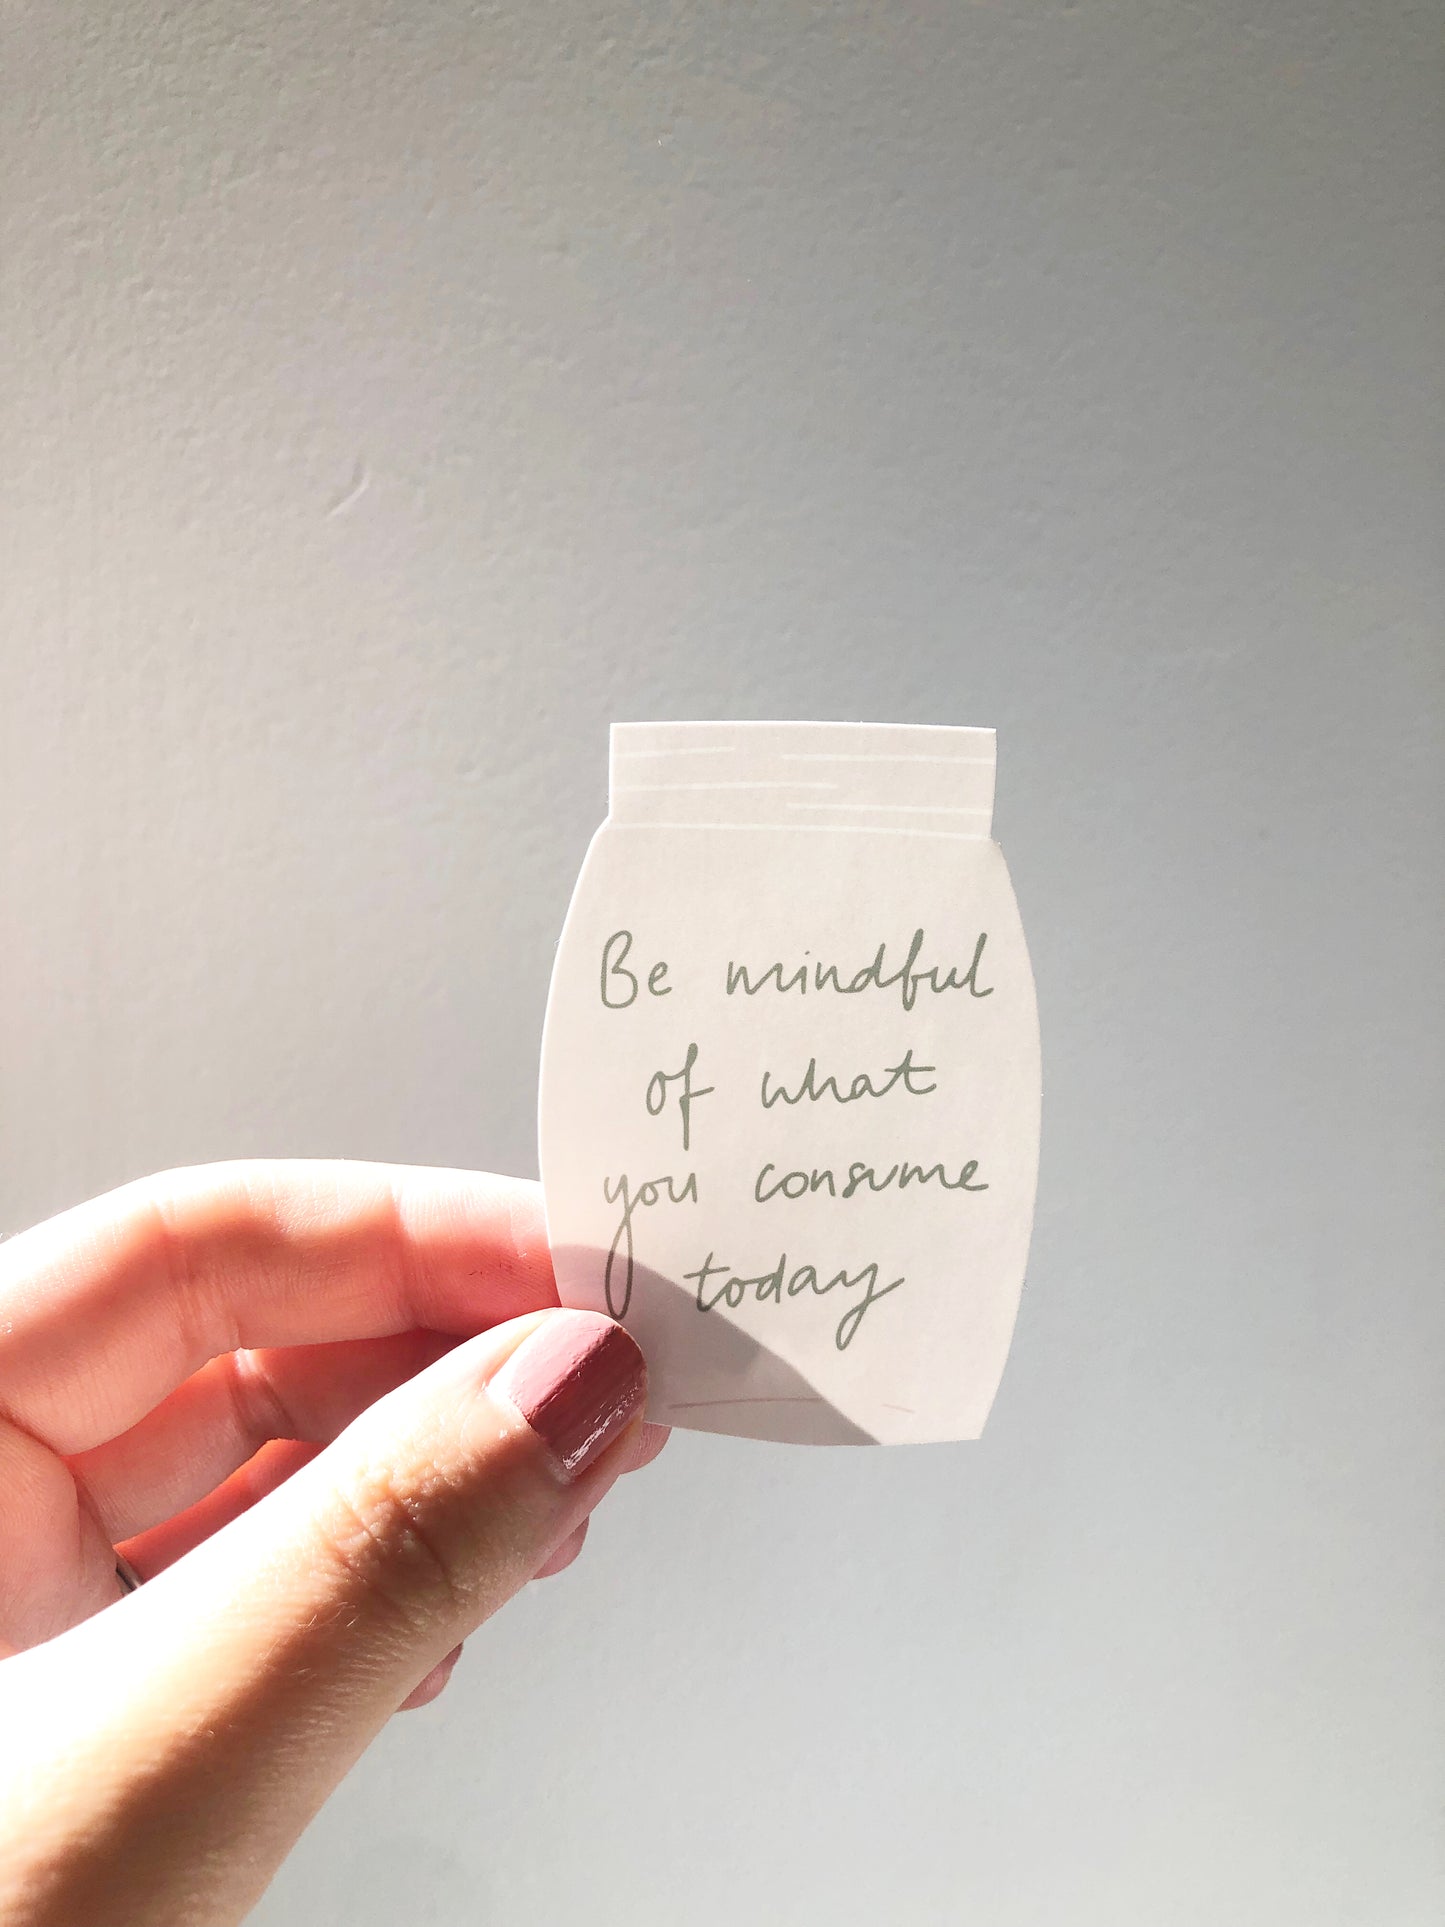 Be mindful
of what
you consume
today